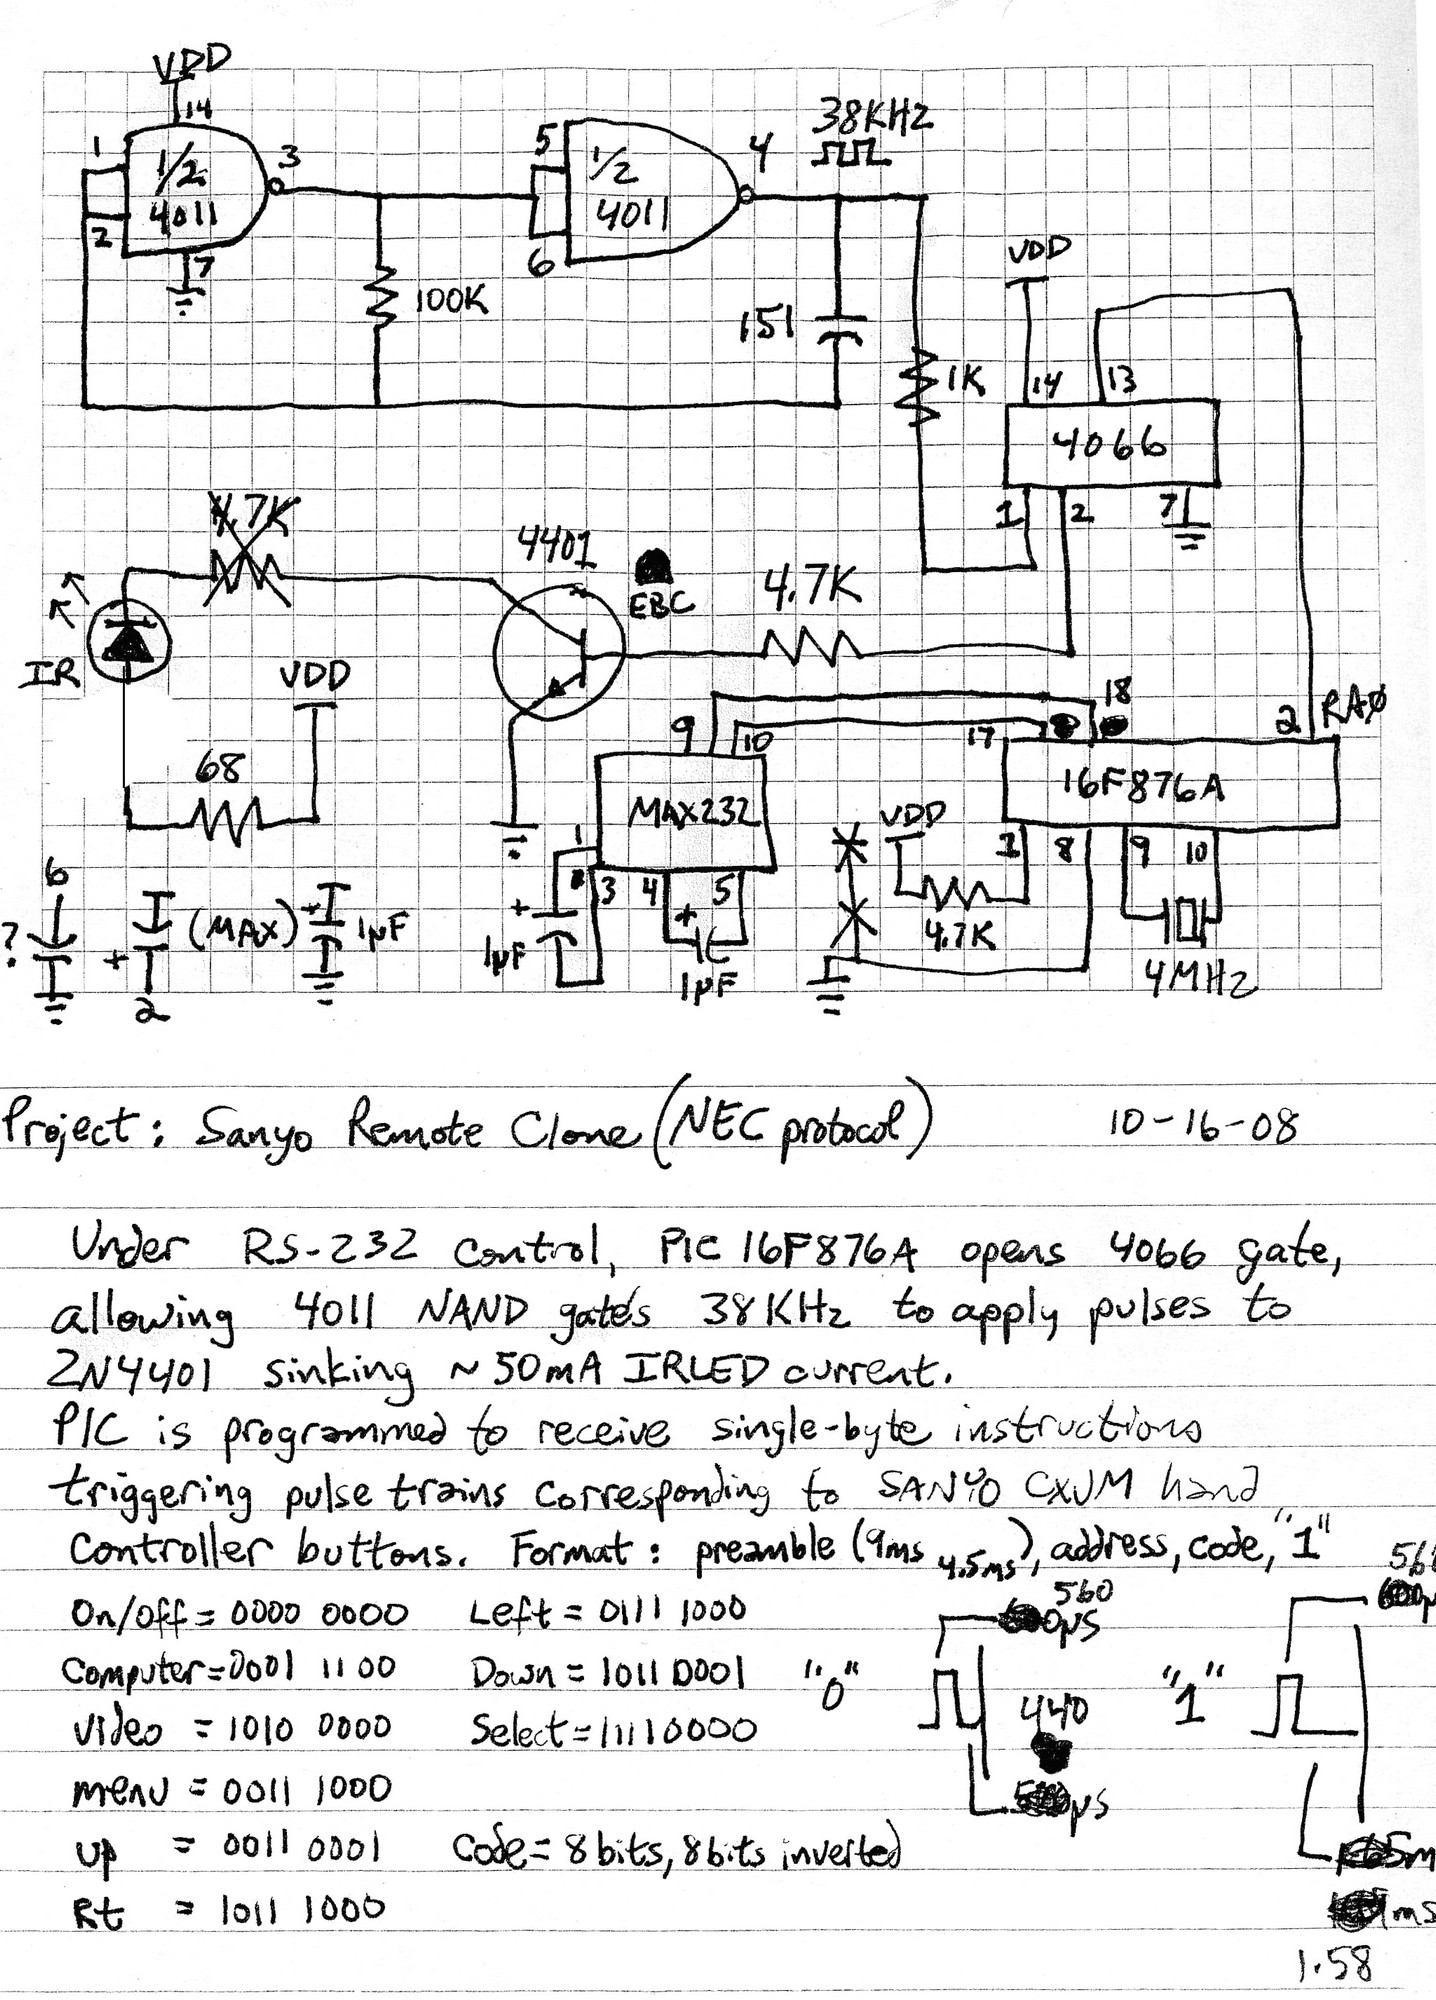 VDD
14
1
1/2
4011
3
2
7
5
1/2
4011
6
4
38KHz
100K
151
1K
VDD
14
13
4066
1
2
7
4.7K
4401
EBC
4.7K
IR
VDD
68
9
10
MAX232
1
3
4
5
+
1µF
+
1µF
17
18
2
RAØ
16F876A
VDD
4.7K
1
8
9
10
4MHz
6
?
+
2
(MAX)
+
1µF
Project: Sanyo Remote Clone (NEC protocol) 10-16-08
Under RS-232 control, PIC 16F876A opens 4066 gate,
allowing 4011 NAND gate's 38KHz to apply pulses to
2N4401 sinking ~50mA IRLED current.
PIC is programmed to receive single-byte instructions
triggering pulse trains corresponding to SANYO CXJM hand
Controller buttons. Format: preamble (9ms 4.5ms), address, code, "1"
On/off = 0000 0000 Left = 0111 1000
Computer = 0001 1100 Down = 1011 0001
Video = 1010 0000 Select = 11110000
menu = 0011 1000
up = 0011 0001 Code = 8 bits, 8 bits inverted
Rt = 1011 1000
"0"
560
µs
440
µs
"1"
ms
1.58